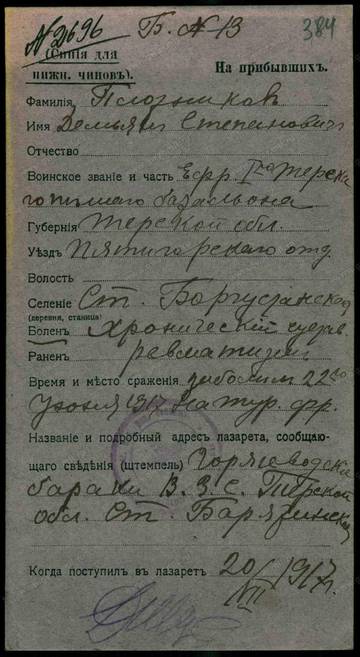 № 2696 Б. № 13 384
(Синія для
нижн. чиновъ). На прибывшихъ.
Фамилія Плотников
Имя Демьян Степанович
Отчество
Воинское званіе и часть Ефр. 1го Терска
го пѣшаго батальона
Губернія Терской обл.
Уѣздъ Пятигорскаго отд.
Волость
Селеніе Ст. Боргустанской
(деревня, станица)
Боленъ Хроническій сустав.
Раненъ ревматизм
Время и мѣсто сраженія заболѣл 22го
Іюня 1917 На тур. фр.
Названіе и подробный адресъ лазарета, сообщаю-
щаго свѣдѣнія (штемпель) Горячеводскія
бараки В. З. С. Терской
обл. Ст. Барятинской
Когда поступилъ въ лазаретъ 20/VII 1917 г.